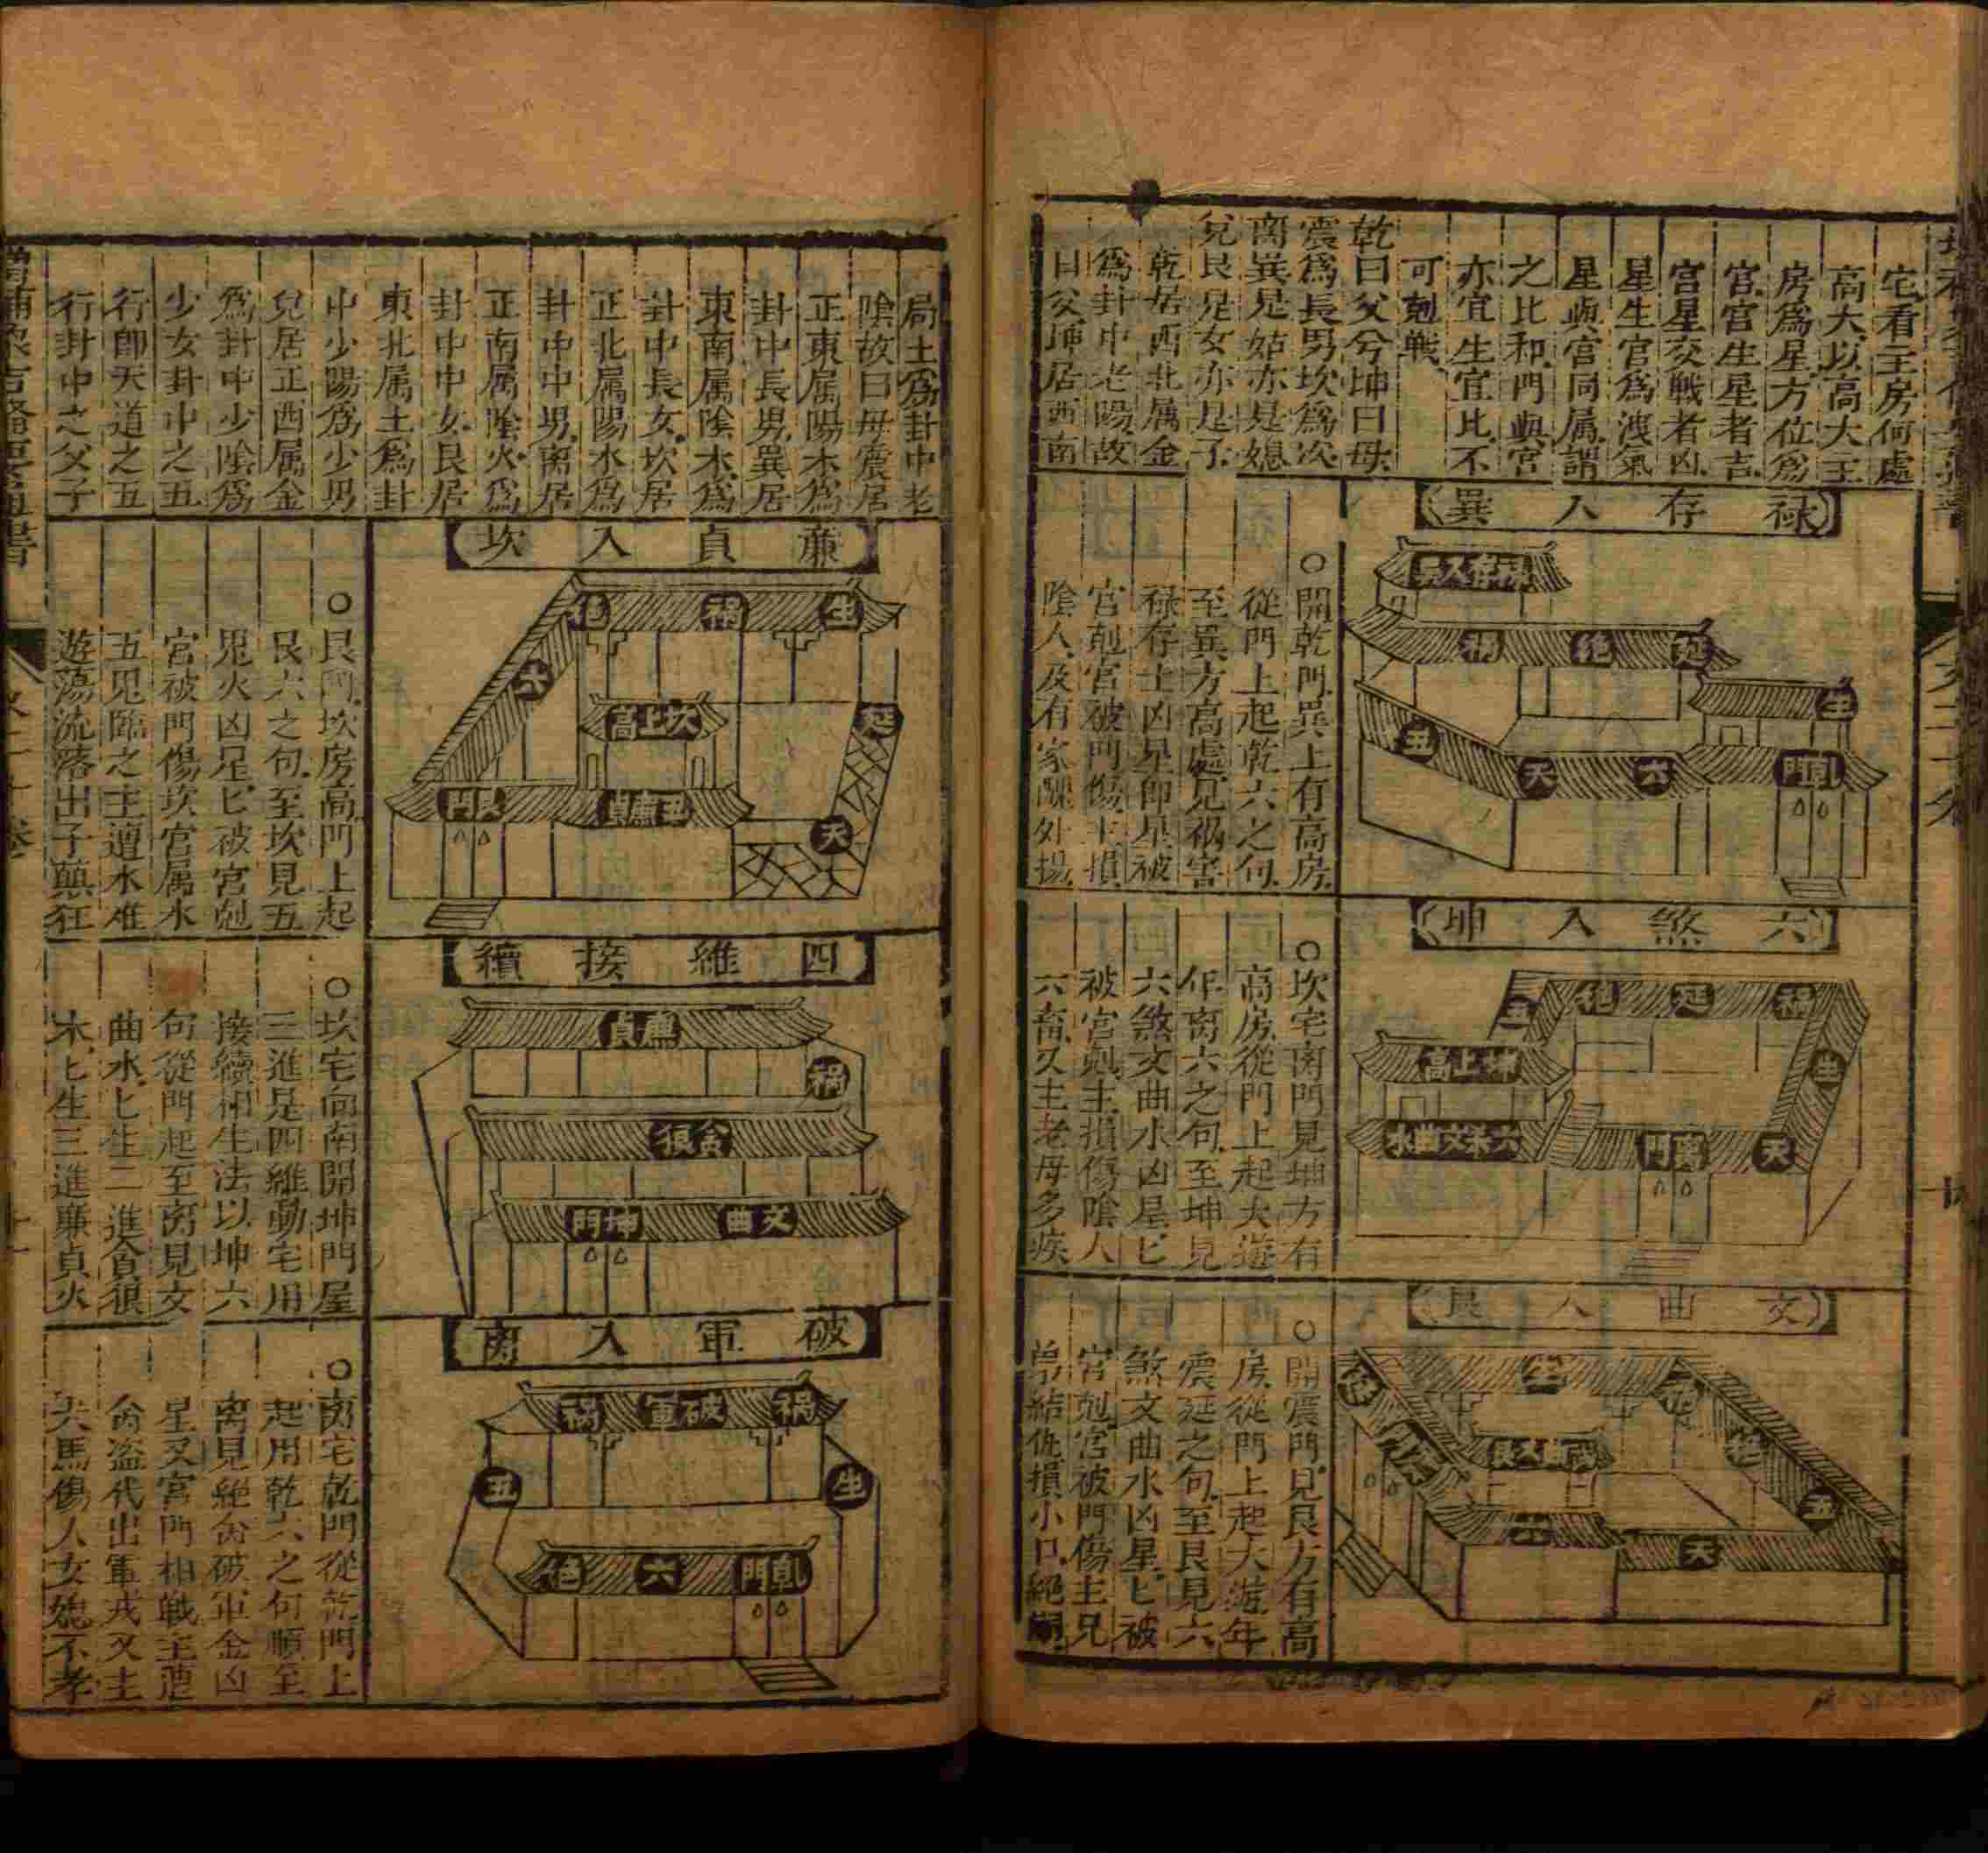 宅看主房何處
高大以高大主
房爲星方位爲
宮宮生星者吉
宮星交戰者凶
星生宮爲洩氣
星與宮同属謂
之比和門與宮
亦宜生宜比不
可剋戰
乾曰父兮坤曰母
震爲長男坎爲次
离巽是姑亦是媳
兌艮是女亦是子
乾居西北属金
爲卦中老陽故
曰父坤居西南
禄存入巽
禄存入巽
禍 絶 延
生
五 天 六
乾門
○開乾門巽上有高房
從門上起乾六之句
至巽方高處見禍害
禄存土凶星卽星被
宮剋宮被門傷主損
陰人及有家醜外揚
六煞入坤
五 絶 延 禍
生
坤上高
六禾文曲水
离門
天
○坎宅南門見坤方有
高房從門上起大遊
年离六之句至坤見
六煞文曲水凶星匕
被宮剋主損傷陰人
六畜又主老母多疾
文曲入艮
生
五
天
○開震門見艮方有高
房從門上起大遊年
震延之句至艮見六
煞文曲水凶星匕被
宮剋宮被門傷主兄
弟結仇損小口絕嗣
局土爲卦中老
陰故曰母震居
正東属陽木爲
卦中長男巽居
東南属陰木爲
卦中長女坎居
正北属陽水爲
卦中中男离居
正南属陰火爲
卦中中女艮居
東北属土爲卦
中少陽爲少男
兌居正西属金
爲卦中少陰爲
少女卦中之五
行卽天道之五
行卦中之父子
廉貞入坎
絶 禍 生
六
坎上高
延
艮門
五廉貞
天
○艮門坎房高門上起
艮六之句至坎見五
鬼火凶星匕被宮剋
宮被門傷坎宮属水
五鬼臨之主遭水难
遊蕩流落出子顛狂
四維接續
廉貞
禍
貪狼
坤門
文曲
○坎宅向南開坤門屋
三進是四維動宅用
接續相生法以坤六
句從門起至离見文
曲水匕生二進貪狼
木匕生三進廉貞火
破軍入离
禍 破軍 禍
五
生
絶 六 乾門
○离宅乾門從乾門上
起用乾六之句順至
离見絕命破軍金凶
星又宮門相戰主遭
命盗代出軍戎又主
犬馬傷人女媳不孝